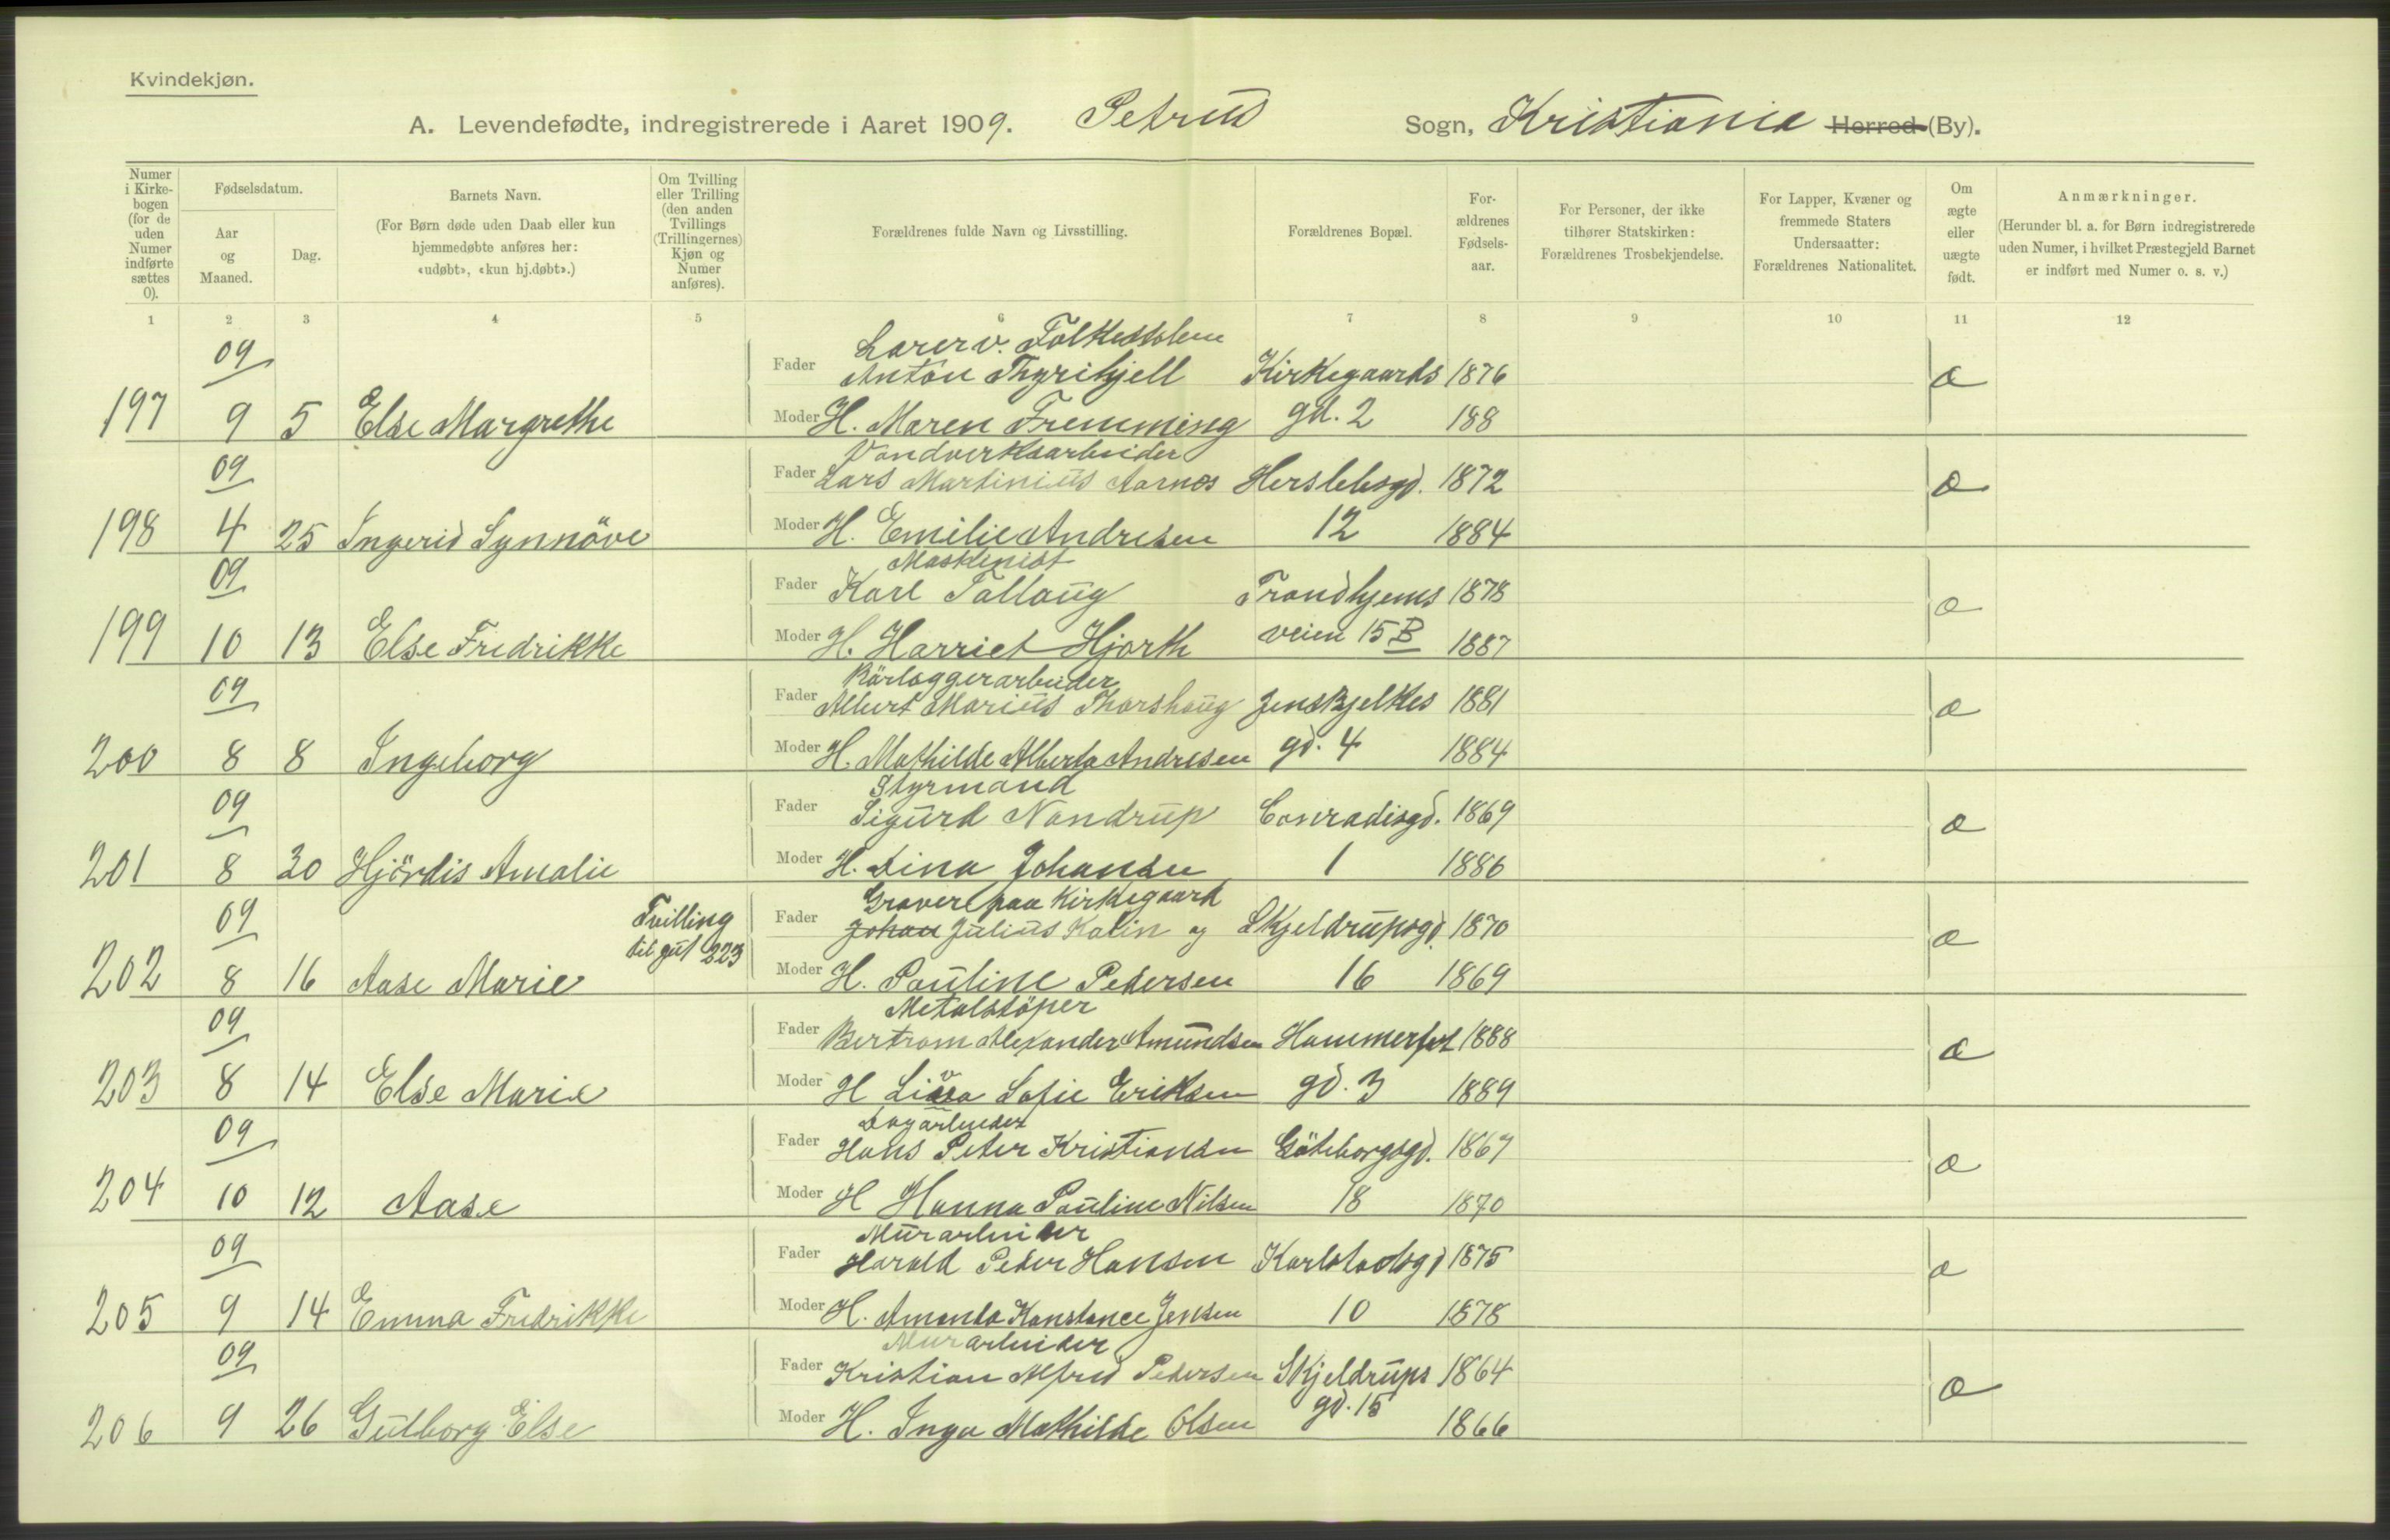 Kvindekjøn.
A. Levendefødte, indregistrerede i Aaret 1909. Petrus Sogn, Kristiania Herred (By).
Numer i Kirkebogen (for de uden Numer indførte sættes 0).
Fødselsdatum.
Aar og Maaned.
Dag.
Barnets Navn.
(For Børn døde uden Daab eller kun hjemmedøbte anføres her: «udøbt», «kun hj.døbt».)
Om Tvilling eller Trilling (den anden Tvillings (Trillingernes) Kjøn og Numer anføres).
Forældrenes fulde Navn og Livsstilling.
Forældrenes Bopæl.
Forældrenes Fødselsaar.
For Personer, der ikke tilhører Statskirken: Forældrenes Trosbekjendelse.
For Lapper, Kvæner og fremmede Staters Undersaatter: Forældrenes Nationalitet.
Om ægte eller uægte født.
Anmærkninger.
(Herunder bl. a. for Børn indregistrerede uden Numer, i hvilket Præstegjeld Barnet er indført med Numer o. s. v.)
1 2 3 4 5 6 7 8 9 10 11 12
09 Lærer v. Folkeskolen
Fader Anton Thyrihjell Kirkegaards 1876 æ
197 9 5 Else Margrethe Moder H. Maren Fremming gd. 2 188
09 Vandverksarbeider
Fader Lars Martinius Aarnæs Herslebsgd. 1872 æ
198 4 25 Ingerid Synnöve Moder H. Emilie Andresen 12 1884
09 Maskinist
Fader Karl Tallaug Trondhjems 1878 æ
199 10 13 Else Fredrikke Moder H. Harriet Hjorth veien 15 B 1887
09 Rörlæggerarbeider
Fader Albert Marius Thorshaug Jens Bjelkes 1881 æ
200 8 8 Ingeborg Moder H. Mathilde Alberta Andresen gd. 4 1884
09 Styrmand
Fader Sigurd Nandrup Conradisgd. 1869 æ
201 8 30 Hjördis Amalie Moder H. Lina Johansen 1 1886
09 Tvilling til gut 223 Graver paa Kirkegaard
Fader Johan Julius Kalin og Skjeldrupsgd. 1870 æ
202 8 16 Aase Marie Moder H. Pauline Pedersen 16 1869
09 Metalstöper
Fader Bertram Alexander Amundsen Hammerfest 1888 æ
203 8 14 Else Marie Moder H Sofie Eriksen gd. 3 1889
09 Dagarbeider
Fader Hans Peter Kristiansen Göteborgsgd. 1867 æ
204 10 12 Aase Moder H Hanna Pauline Nilsen 18 1870
09 Murarbeider
Fader Harald Peder Hansen Karlstadsgd 1875 æ
205 9 14 Emma Fredrikke Moder H. Amanda Konstance Jensen 10 1878
09 Murarbeider
Fader Kristian Alfred Pedersen Skjeldrups 1864 æ
206 9 26 Gudborg Else Moder H. Inga Mathilde Olsen gd. 15 1866